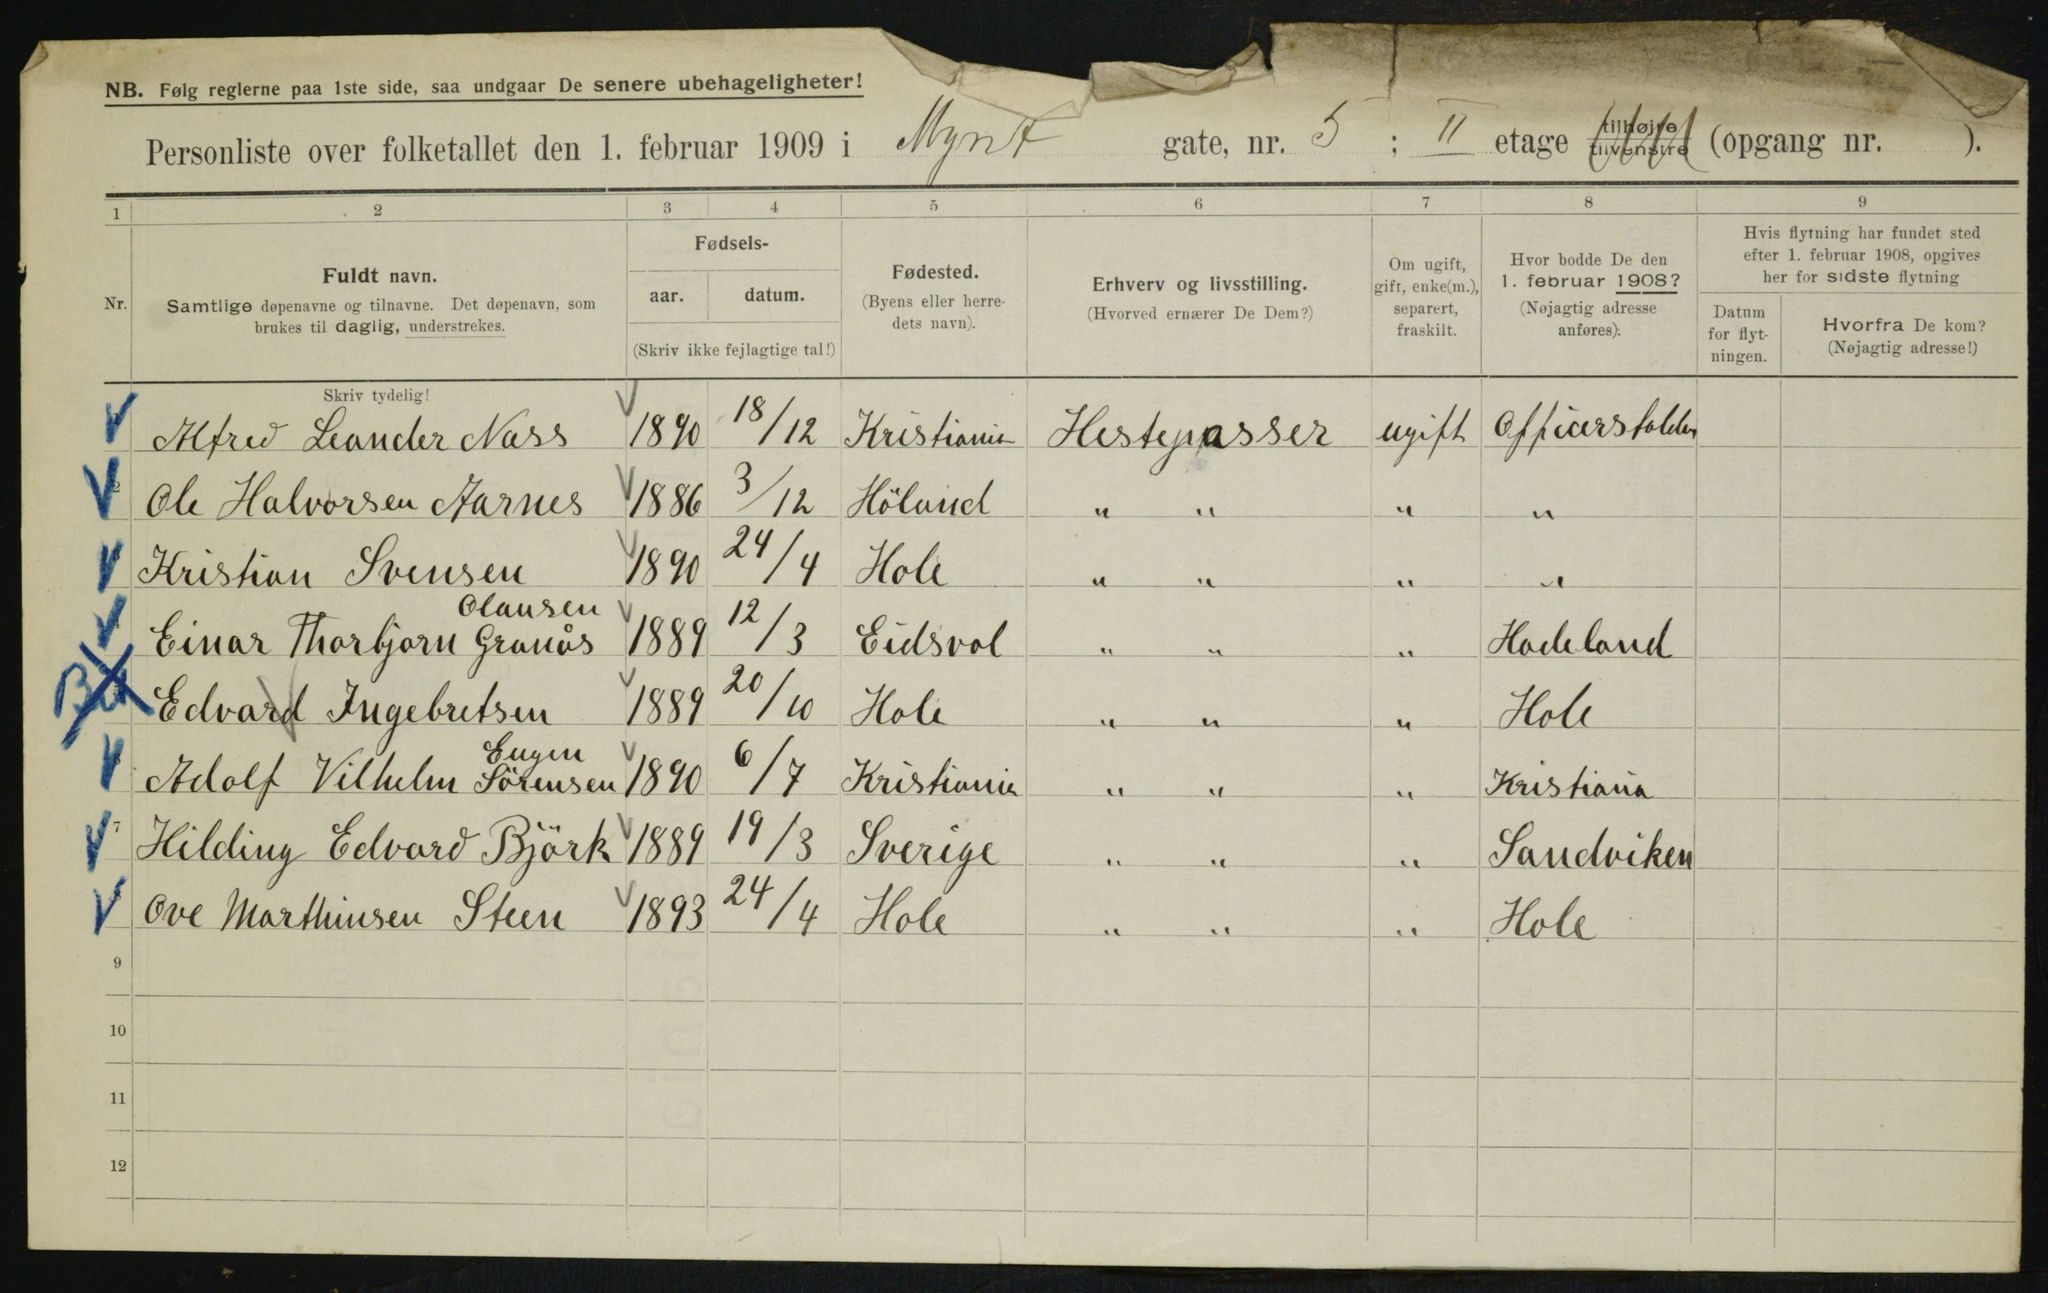 NB. Følg reglerne paa 1ste side, saa undgaar De senere ubehageligheter!
Personliste over folketallet den 1. februar 1909 i Mynt gate, nr. 5 ; II etage tilhøire tilvenstre (opgang nr. ).
1 2 3 4 5 6 7 8 9
Nr.
Fuldt navn.
Samtlige døpenavne og tilnavne. Det døpenavn, som
brukes til daglig, understrekes.
Fødsels-
aar. datum.
(Skriv ikke fejlagtige tal!)
Fødested.
(Byens eller herre-
dets navn).
Erhverv og livsstilling.
(Hvorved ernærer De Dem?)
Om ugift,
gift, enke(m.),
separert,
fraskilt.
Hvor bodde De den
1. februar 1908?
(Nøjagtig adresse
anføres).
Hvis flytning har fundet sted
efter 1. februar 1908, opgives
her for sidste flytning
Datum
for flyt-
ningen.
Hvorfra De kom?
(Nøjagtig adresse!)
Skriv tydelig!
Alfred Leander Næss 1890 18/12 Kristiania Hestepasser ugift
2 Ole Halvorsen Aarnes 1886 3/12 Höland " " " "
Kristian Svensen 1890 24/4 Hole " " " "
Olausen
Einar Thorbjørn Granås 1889 12/3 Eidsvol " " " Hadeland
Edvard Ingebretsen 1889 20/10 Hole " " " Hole
Eugen
Adolf Vilhelm Sörensen 1890 6/7 Kristiania " " " Kristiania
7 Hilding Edvard Björk 1889 19/3 Sverige " " " Sandviken
Ove Marthinsen Steen 1893 24/4 Hole " " " Hole
9
10
11
12